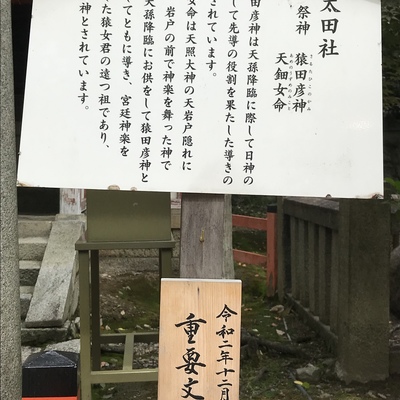 太田社
祭神 猿田彦神
さるたひこのかみ
天鈿女命
あめのうずめのみこと
田彦神は天孫降臨に際して日神の
して先導の役割を果たした導きの
されています。
女命は天照大神の天岩戸隠れに
岩戸の前で神楽を舞った神で
天孫降臨にお供をして猿田彦神と
てともに導き、宮廷神楽を
た猿女君の遠つ祖であり、
神とされています。
令和二年十二月
重要文